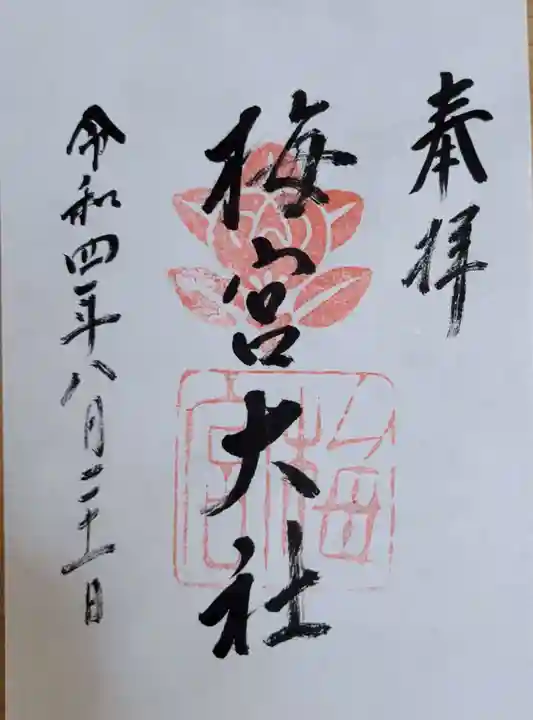 奉拝
梅宮大社
梅宮
令和四年八月二十一日